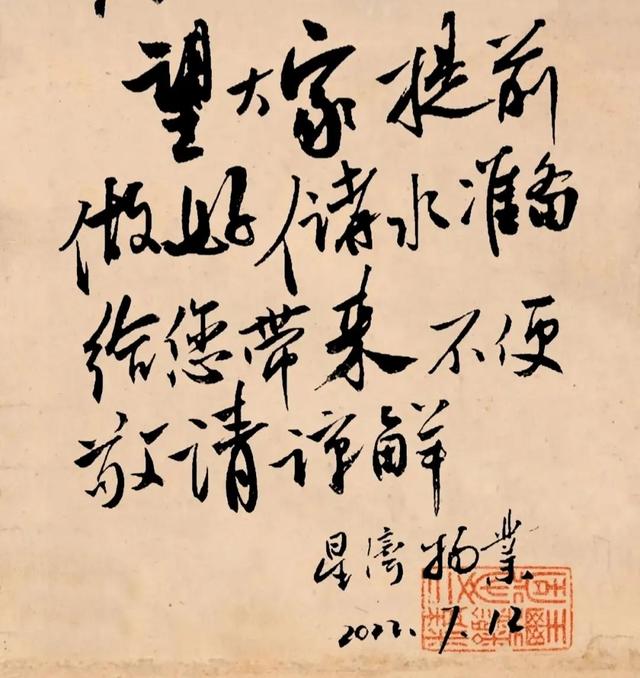 望大家提前
做好储水准备
给您带来不便
敬请谅解
星 物業
2022.7.12